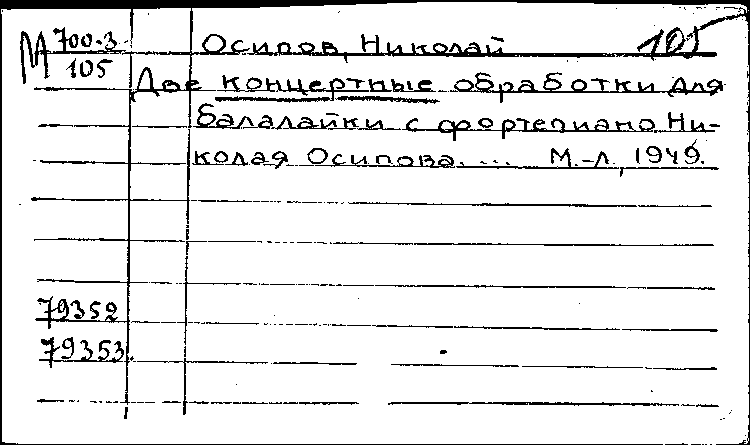 М 700-3
105
Осипов, Николай
105
Две концертные обработки для
балалайки с фортепиано Ни-
колая Осипова. ... М.-Л, 1949.
79352
79353.